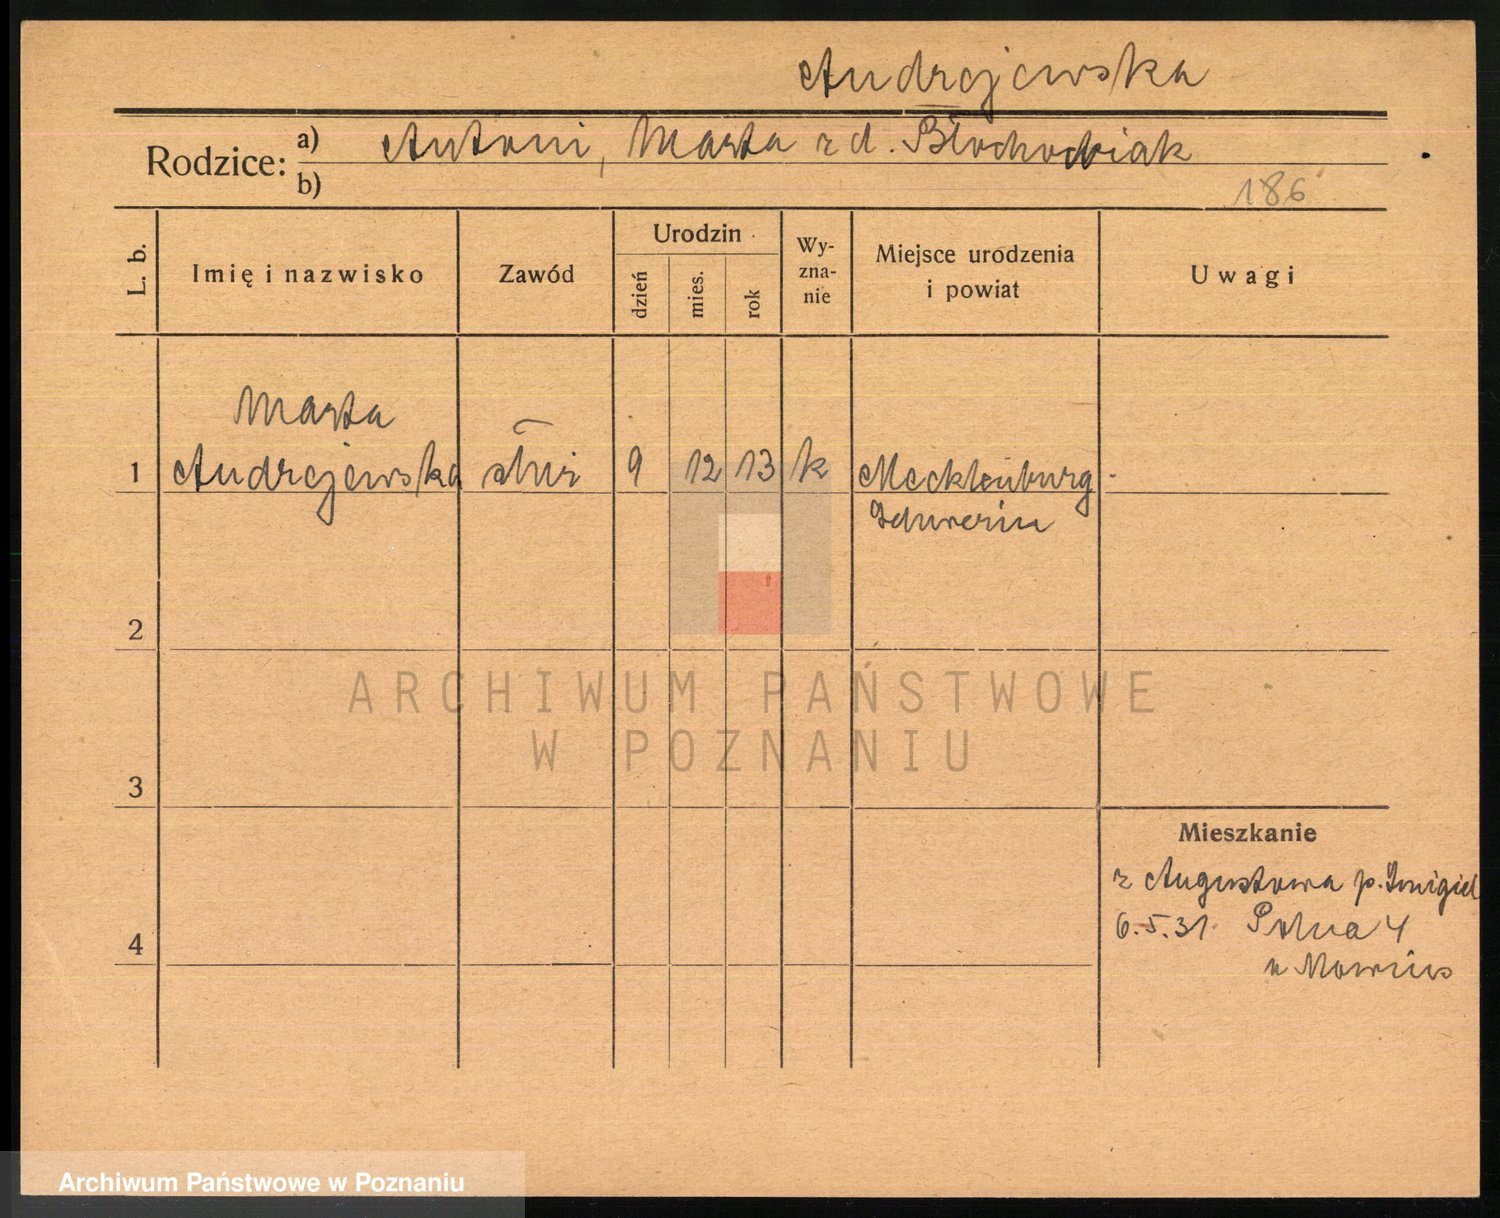 Andrzejewska
Rodzice: a) Antoni, Marta z d. Błochowiak
b)
186
L. b.
Imię i nazwisko
Zawód
Urodzin
dzień
mies.
rok
Wy-
zna-
nie
Miejsce urodzenia
i powiat
Uwagi
Marta
1 Andrzejewska służ 9 12 13 k Mecklenburg
Schwerin
2
ARCHIWUM PAŃSTWOWE
W POZNANIU
3
Mieszkanie
z Augustowa p. Śmigiel
4 6.5.31 Polna 4
u
Archiwum Państwowe w Poznaniu